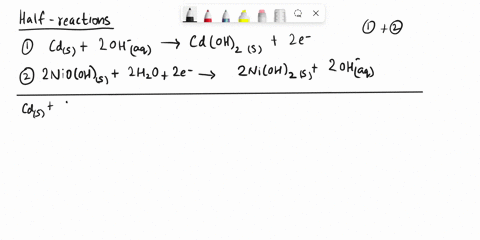 Half-reactions
① + ②
① Cd(s) + 2OH⁻(aq) → Cd(OH)₂ (s) + 2e⁻
② 2NiO(OH)(s) + 2H₂O + 2e⁻ → 2Ni(OH)₂ (s) + 2OH⁻(aq)
Cd(s) +